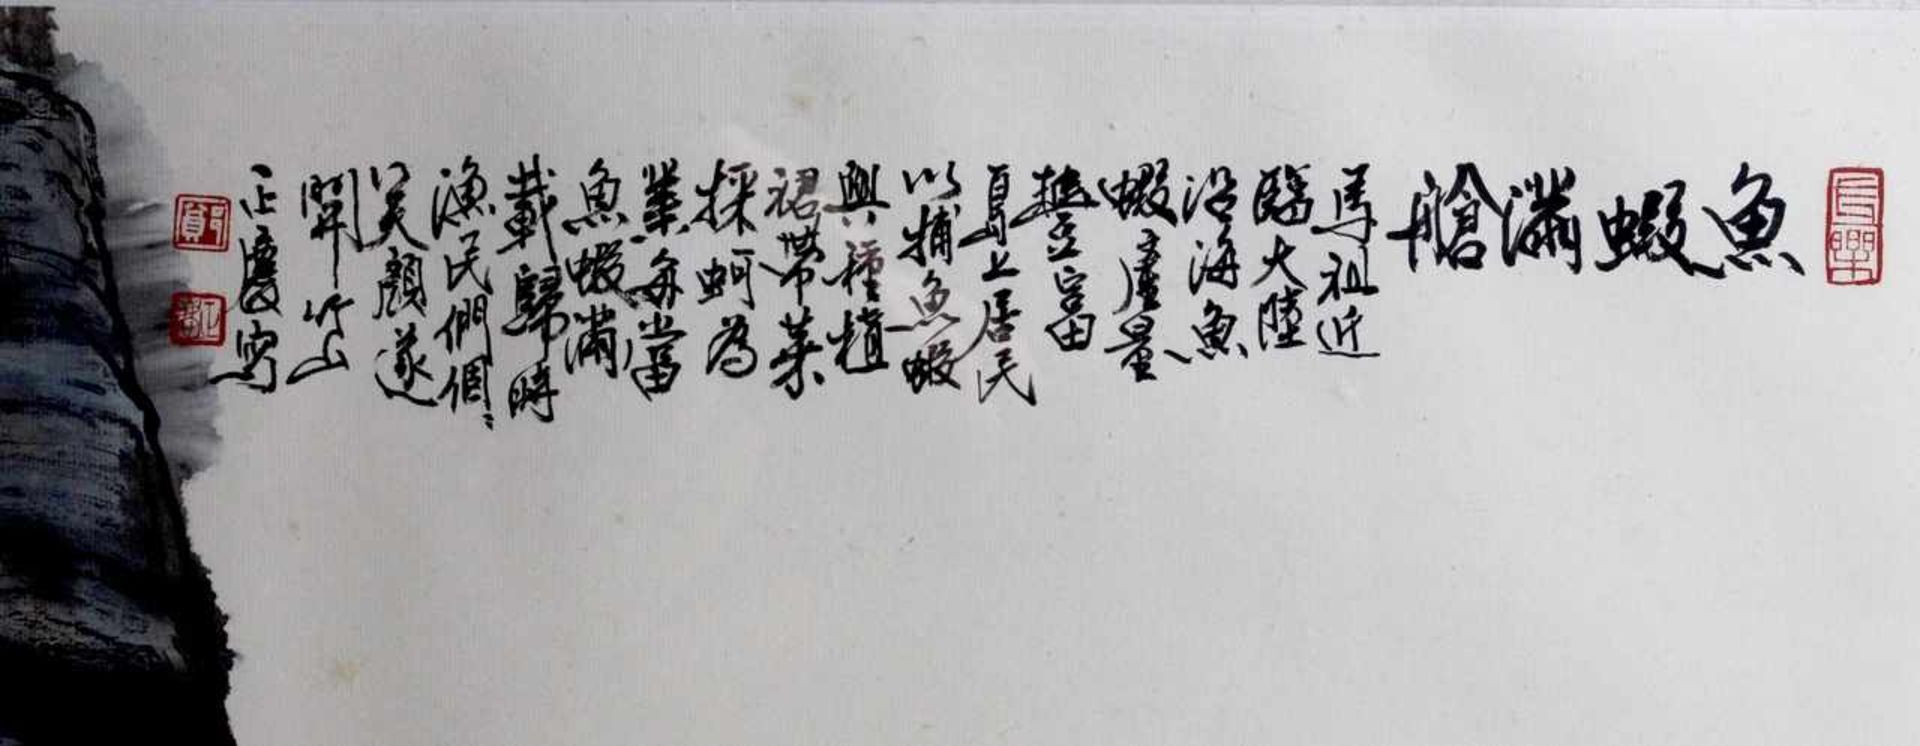 魚蝦滿艙
馬祖近
臨大陸
沿海魚
蝦產量
豐富
島上居民
以捕魚蝦
與種植
裙帶菜
採蚵為
業每當
魚蝦滿
載歸時
漁民們個々
笑顏遂
開 竹山
正慶寫
鄭